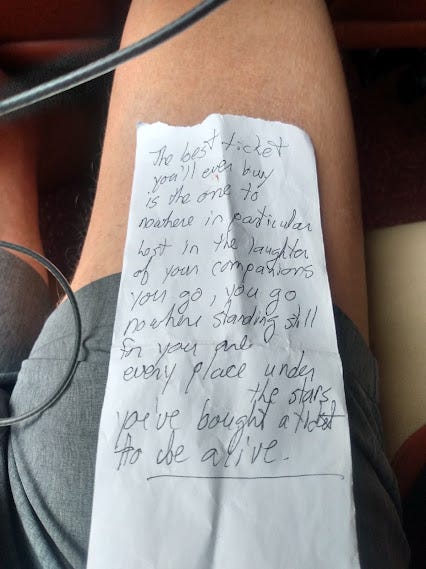 The best ticket
you'll ever buy
is the one to
nowhere in particular
Lost in the laughter
of your companions
you go, you go
nowhere standing still
for you are
every place under
the stars
you've bought a ticket
to be alive.